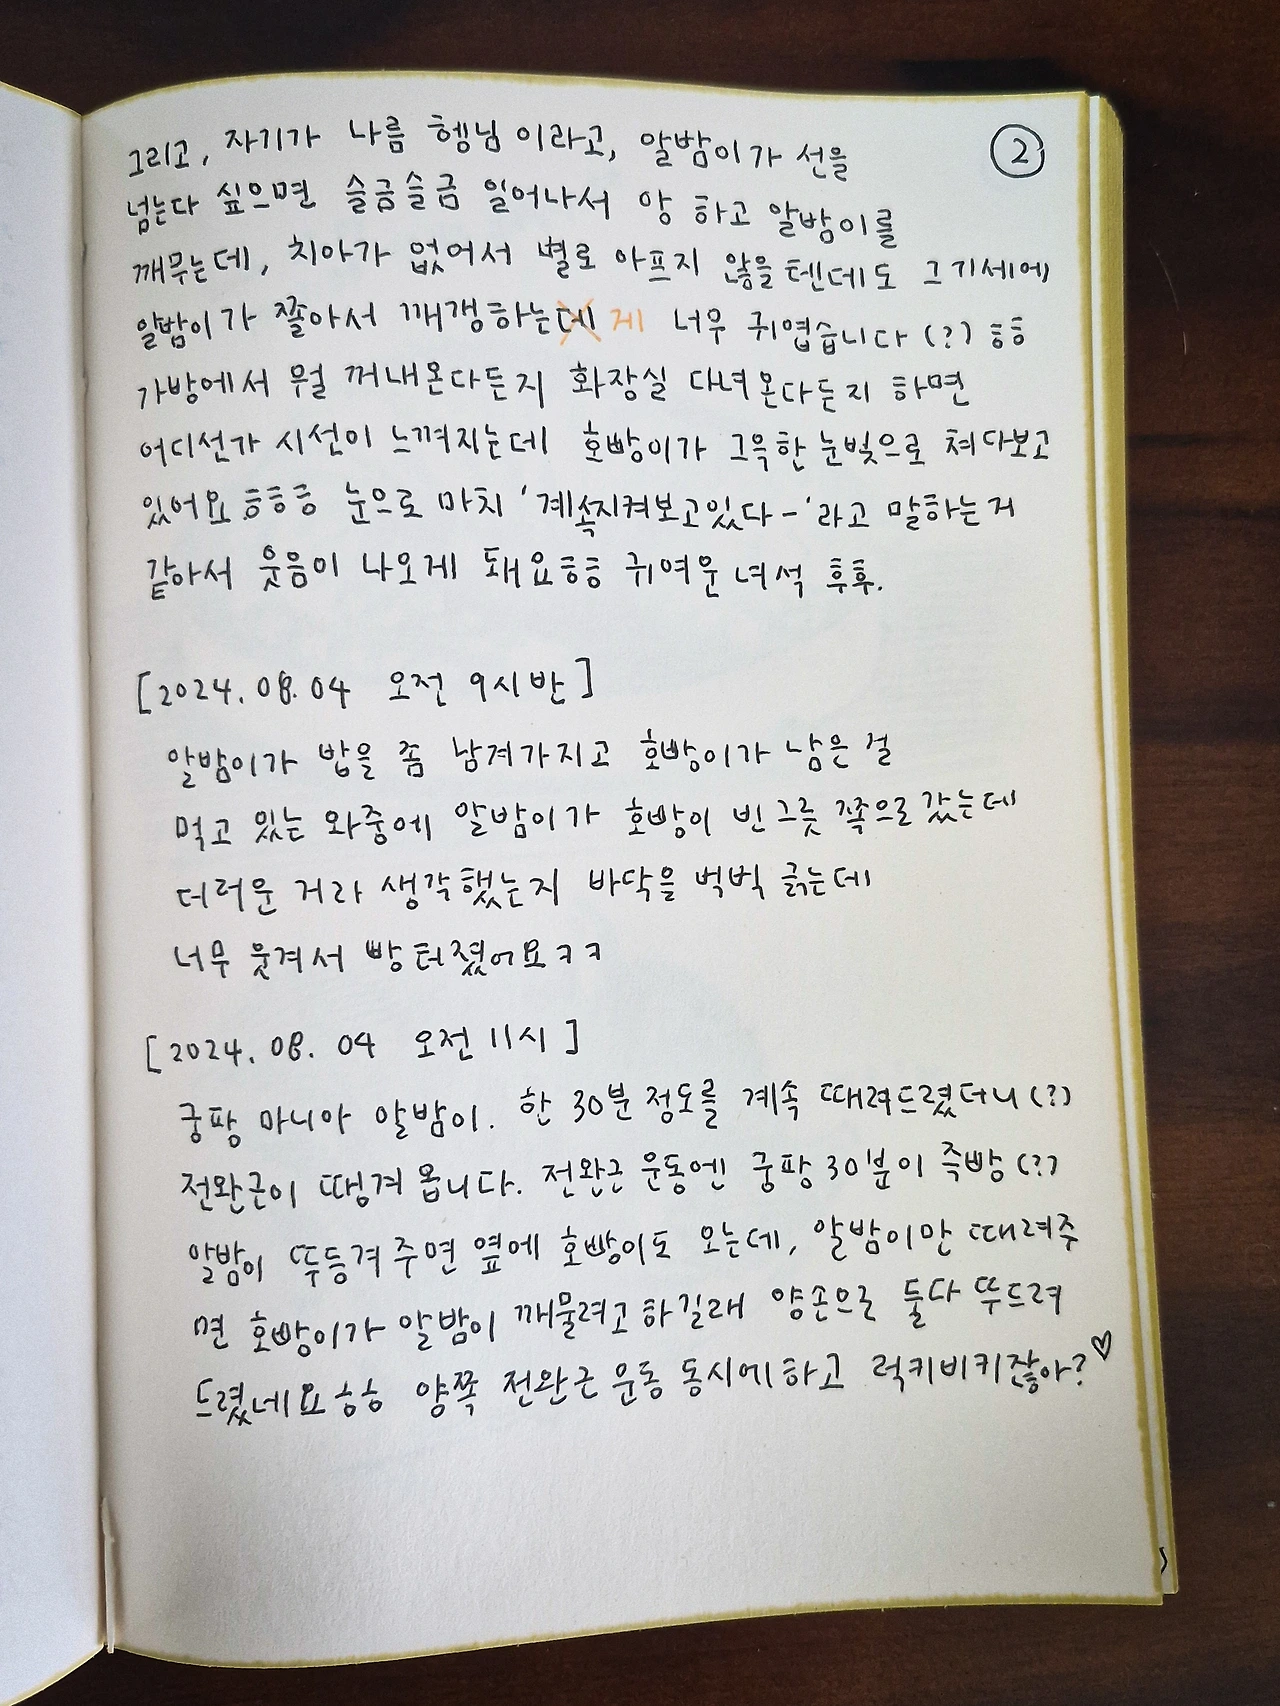 ②
그리고, 자기가 나름 행님이라고, 알밤이가 선을
넘는다 싶으면 슬금슬금 일어나서 앙 하고 알밤이를
깨무는데, 치아가 없어서 별로 아프지 않을텐데도 그 기세에
알밤이가 쫄아서 깨갱하는데 게 너무 귀엽습니다 (?) ㅎㅎ
가방에서 뭘 꺼내온다든지 화장실 다녀온다든지 하면
어디선가 시선이 느껴지는데 호빵이가 그윽한 눈빛으로 쳐다보고
있어요 ㅎㅎㅎ 눈으로 마치 '계속지켜보고있다-'라고 말하는거
같아서 웃음이 나오게 돼요ㅎㅎ 귀여운 녀석 후후.
[2024.08.04 오전 9시 반]
알밤이가 밥을 좀 남겨가지고 호빵이가 남은 걸
먹고 있는 와중에 알밤이가 호빵이 빈그릇 쪽으로 갔는데
더러운 거라 생각했는지 바닥을 벅벅 긁는데
너무 웃겨서 빵 터졌어요ㅋㅋ
[2024.08.04 오전 11시]
궁팡 마니아 알밤이. 한 30분 정도를 계속 때려드렸더니(?)
전완근이 땡겨 옵니다. 전완근 운동엔 궁팡 30분이 즉빵(?)
알밤이 뚜등겨 주면 옆에 호빵이도 오는데, 알밤이만 때려주
면 호빵이가 알밤이 깨물려고 하길래 양손으로 둘다 뚜드려
드렸네요ㅎㅎ 양쪽 전완근 운동 동시에하고 럭키비키잖아?♡